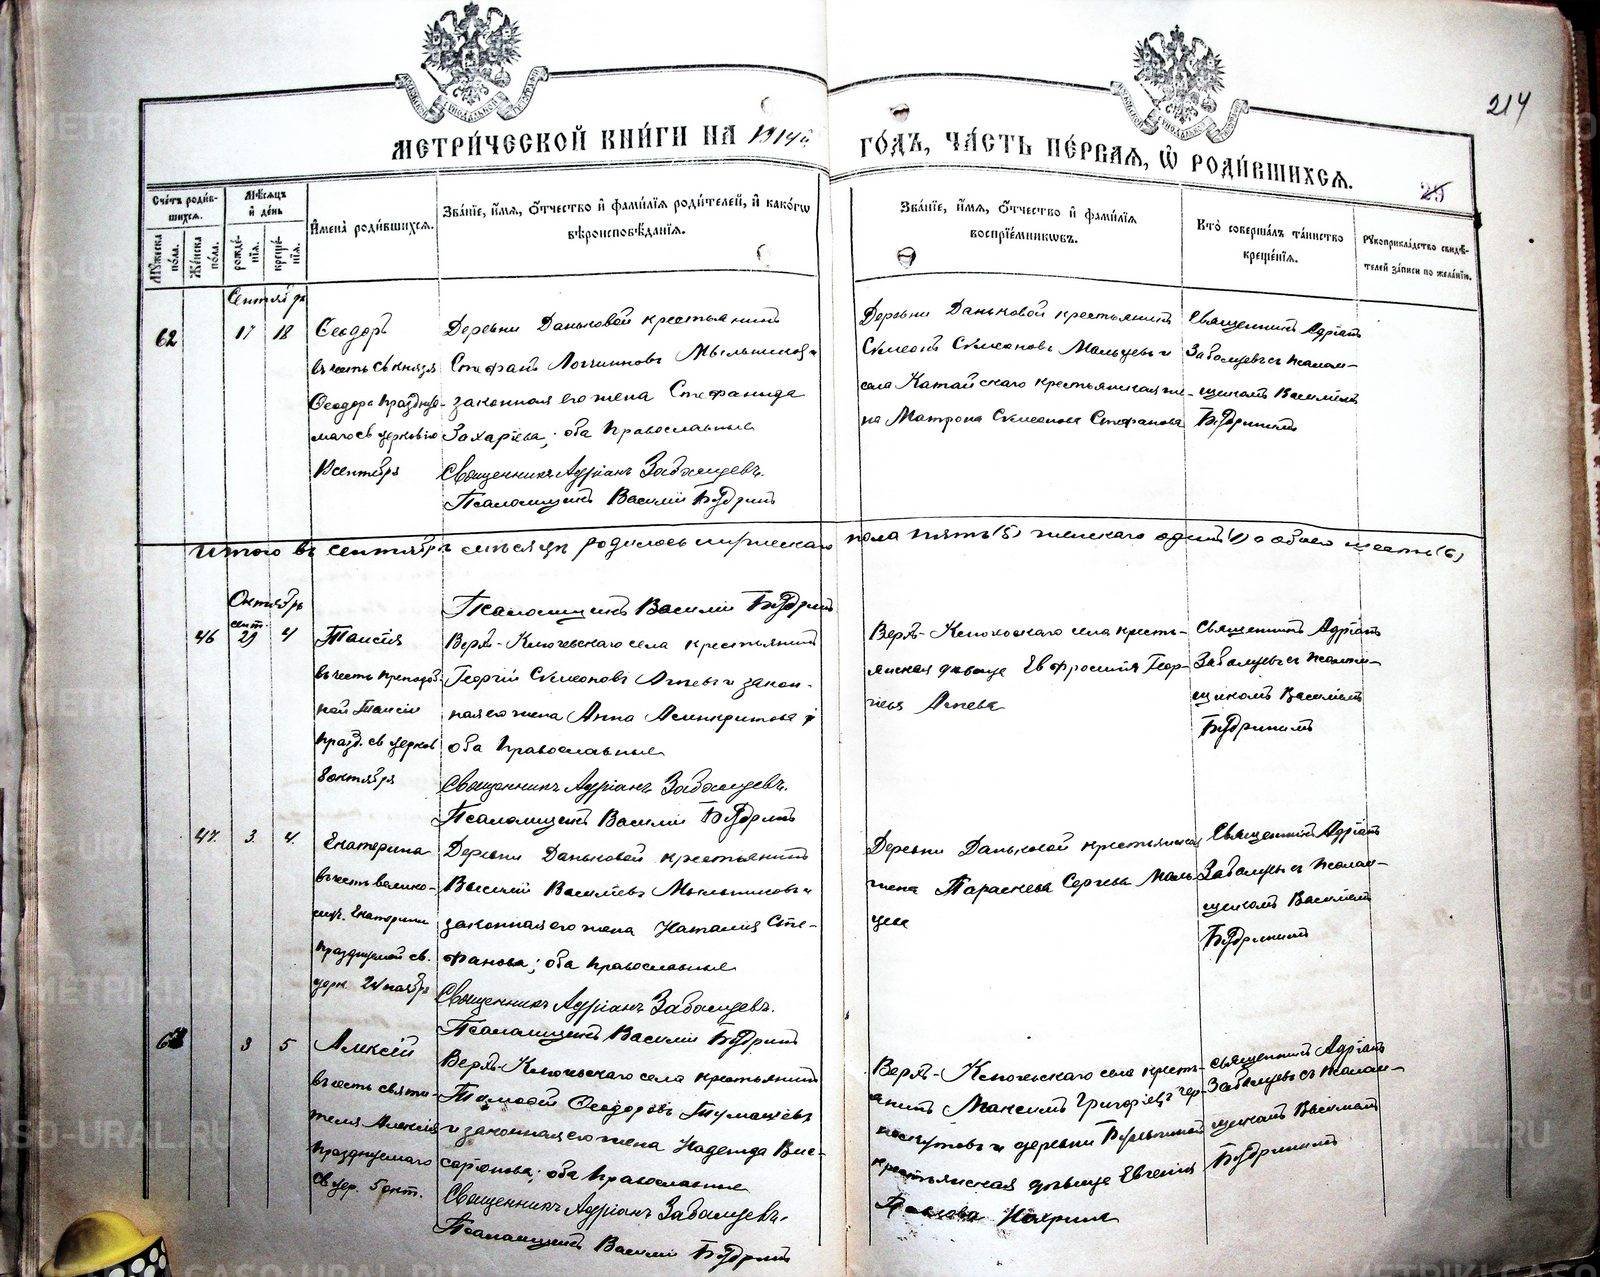 214
МЕТРИ́ЧЕСКОЙ КНИ́ГИ НА 1914й
ГО́ДЪ, ЧА́СТЬ ПЕ́РВАЯ, Ѡ҆ РОДИ́ВШИХСЯ.
25
Сче́тъ роди́в-
шихся.
Му́жеска по́ла.
Же́нска по́ла.
Мѣ́сяцъ
и҆ де́нь
рожде́-
нїя.
креще́-
нїя.
И҆мена̀ роди́вшихся.
Зва́нїе, и҆́мя, ѻ҆́тчество и҆ фами́лїя роди́телей, и҆ како́гѡ
вѣроисповѣ́данїя.
Зва́нїе, и҆́мя, ѻ҆́тчество и҆ фами́лїя
воспрїе́мникѡвъ.
Кто̀ соверша́лъ та́инство
креще́нїя.
Рꙋкоприкла́дство свидѣ́-
телей за́писи по жела́нїю.
Сентябрь
62 17 18
Ѳеодоръ
въ честь св князя
Ѳеодора празднуе-
маго св церковію
19 сентября
Деревни Даньковой крестьянинъ
Стефанъ Логгиновъ Мыльников и
законная его жена Стефанида
Захаріева; оба православные
Священникъ Адріанъ Забалуевъ.
Псаломщикъ Василій Бѣдринъ
Деревни Даньковой крестьянинъ
Сѵмеонъ Сѵмеоновъ Мальцевъ и
села Катайскаго крестьянская же-
на Матрона Сѵмеонова Стефанова
Священникъ Адріанъ
Забалуевъ съ псалом-
щикомъ Василіемъ
Бѣдринымъ
Итого въ сентябрѣ мѣсяцѣ родилось мужескаго пола пять (5) женскаго одинъ (1) а обоего шесть (6)
Псаломщикъ Василій Бѣдринъ
Октябрь
сент.
46 29 4
Таисія
въ честь преподоб-
ной Таисіи
празд. св церков
8 октября
Верх-Ключевскаго села крестьянинъ
Георгій Сѵмеоновъ и закон-
ная его жена Анна Асинкритова
оба православные
Священникъ Адріанъ Забалуевъ.
Псаломщикъ Василій Бѣдринъ
Верх-Ключевскаго села кресть-
янская дѣвица Евфросинія Геор-
гіева
Священникъ Адріанъ
Забалуевъ съ псаломщи-
комъ Василіемъ
Бѣдринымъ
47. 3. 4.
Екатерина
въ честь велико-
муч. Екатерины
празднуемой св.
церк. 24 ноября
Деревни Даньковой крестьянинъ
Василій Василіевъ Мыльниковъ и
законная его жена Наталія Сте-
фанова; оба православные
Священникъ Адріанъ Забалуевъ.
Псаломщикъ Василій Бѣдринъ
Деревни Даньковой крестьянская
жена Параскева Сергева Маль
цева
Священникъ Адріанъ
Забалуевъ съ псалом-
щикомъ Василіемъ
Бѣдринымъ
63 3 5
Алексій
въ честь святи-
теля Алексія
празднуемаго
св цер. 5 окт.
Верх-Ключевскаго села крестьянинъ
Тимофей Ѳеодоровъ Тумашевъ
и законная его жена Надежда Вис-
саріонова; оба православные
Священникъ Адріанъ Забалуевъ.
Псаломщикъ Василій Бѣдринъ
Верх-Ключевскаго села кресть-
янинъ Максимъ Григоріевъ Чер-
и деревни
крестьянская дѣвица Евгенія
Павлова
Священникъ Адріанъ
Забалуевъ съ псалом-
щикомъ Василіемъ
Бѣдринымъ